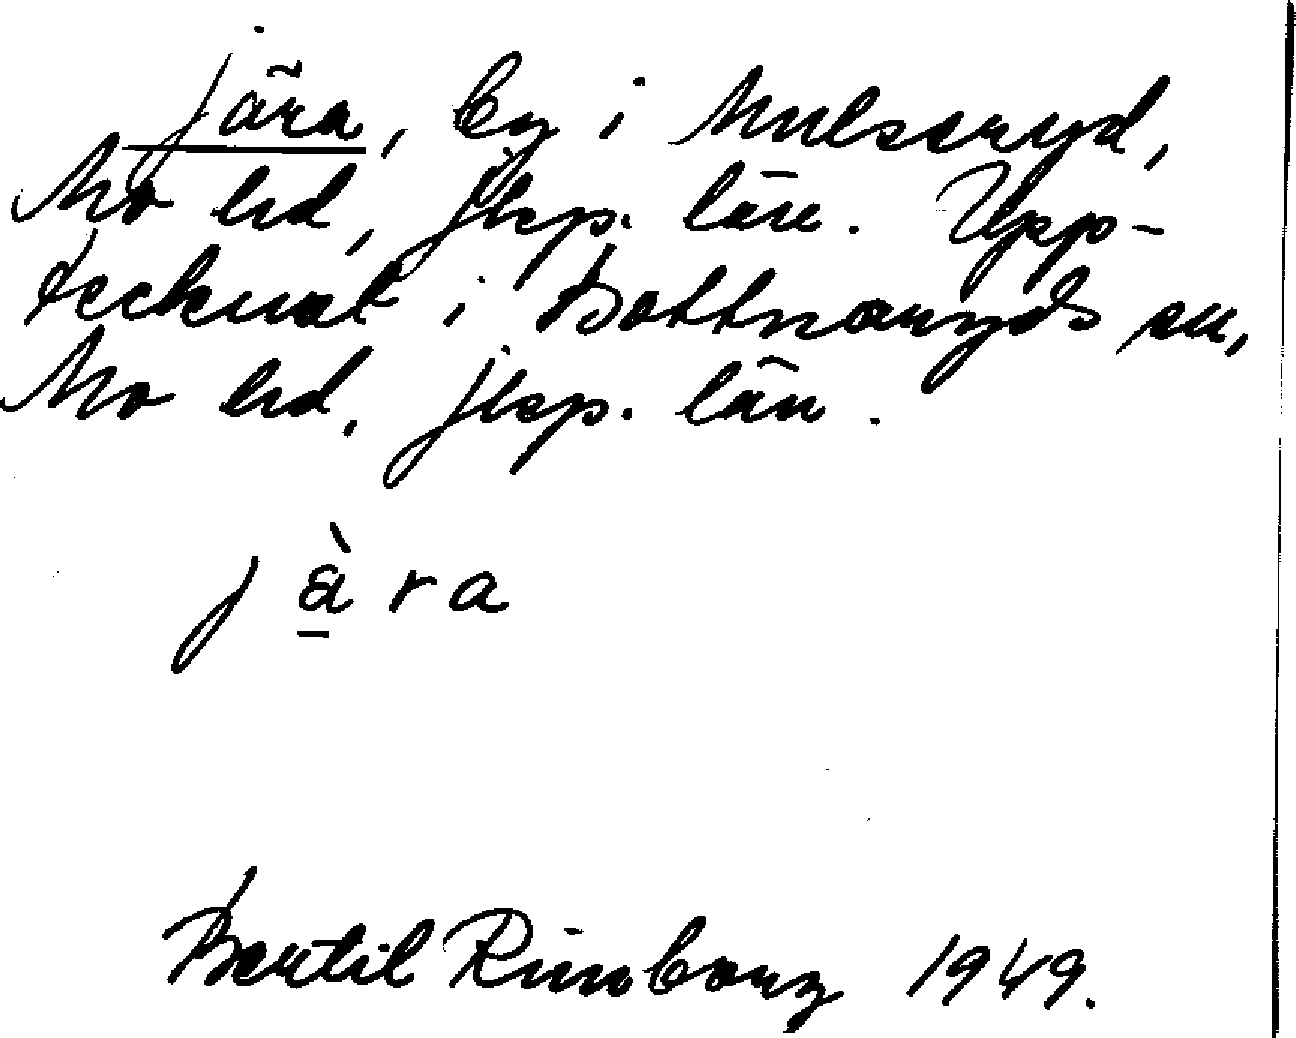 Jära, by i Mulseryd,
Mo hd, Jkp. län. Upp-
tecknat i Bottnaryds sn,
Mo hd, Jkp. län.
jä̀ra
Bertil Rimborg 1949.